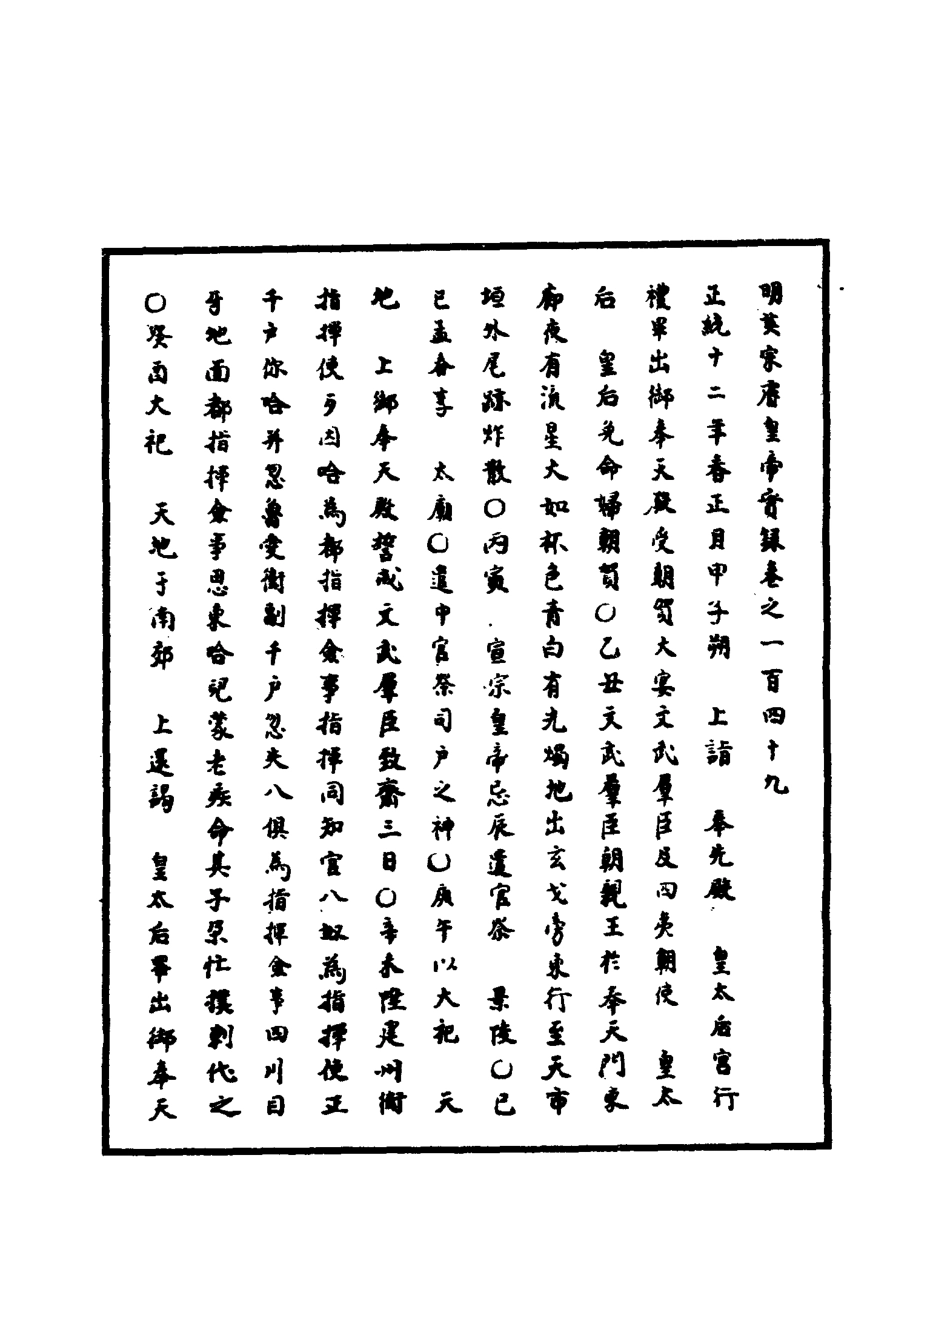 明英宗睿皇帝實録卷之一百四十九
正統十二年春正月甲子朔　上詣　奉先殿　皇太后宮行
禮畢出御奉天殿受朝賀大宴文武羣臣及四夷朝使　皇太
后　皇后免命婦朝賀〇乙丑文武羣臣朝親王於奉天門東
廊夜有流星大如杯色青白有光燭地出玄戈旁東行至天市
垣外尾跡炸散〇丙寅　宣宗皇帝忌辰遣官祭　景陵〇己
巳孟春享　太廟〇遣中官祭司户之神〇庚午以大祀　天
地　上御奉天殿誓戒文武羣臣致齋三日〇辛未陞建州衛
指揮使歹因哈為都指揮僉事指揮同知官八奴為指揮使正
千户你哈并忽魯愛衛副千户忽失八俱為指揮僉事四川日
牙地面都指揮僉事思東哈兒蒙老疾命其子朶忙撲剌代之
〇癸酉大祀　天地于南郊　上還謁　皇太后畢出御奉天